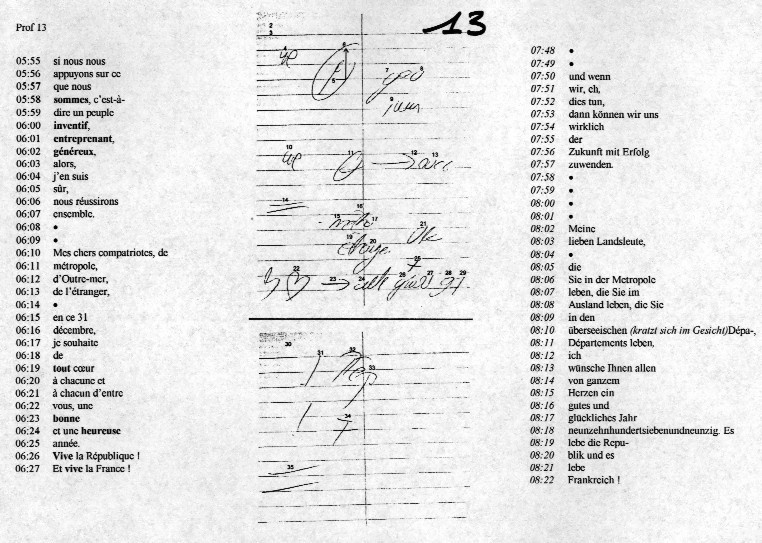 Prof 13
13
05:55 si nous nous
05:56 appuyons sur ce
05:57 que nous
05:58 sommes, c'est-à-
05:59 dire un peuple
06:00 inventif,
06:01 entreprenant,
06:02 généreux,
06:03 alors,
06:04 j'en suis
06:05 sûr,
06:06 nous réussirons
06:07 ensemble.
06:08 •
06:09 •
06:10 Mes chers compatriotes, de
06:11 métropole,
06:12 d'Outre-mer,
06:13 de l'étranger,
06:14 •
06:15 en ce 31
06:16 décembre,
06:17 je souhaite
06:18 de
06:19 tout cœur
06:20 à chacune et
06:21 à chacun d'entre
06:22 vous, une
06:23 bonne
06:24 et une heureuse
06:25 année.
06:26 Vive la République !
06:27 Et vive la France !
2
3
4
6
5
7 8
9
10
11
12 13
14
16
15 17
19 20
21
22
23 24
25
26 27 28 29
30
31
32
33
34
35
07:48 •
07:49 •
07:50 und wenn
07:51 wir, eh,
07:52 dies tun,
07:53 dann können wir uns
07:54 wirklich
07:55 der
07:56 Zukunft mit Erfolg
07:57 zuwenden.
07:58 •
07:59 •
08:00 •
08:01 •
08:02 Meine
08:03 lieben Landsleute,
08:04 •
08:05 die
08:06 Sie in der Metropole
08:07 leben, die Sie im
08:08 Ausland leben, die Sie
08:09 in den
08:10 überseeischen (kratzt sich im Gesicht)Dépa-,
08:11 Départements leben,
08:12 ich
08:13 wünsche Ihnen allen
08:14 von ganzem
08:15 Herzen ein
08:16 gutes und
08:17 glückliches Jahr
08:18 neunzehnhundertsiebenundneunzig. Es
08:19 lebe die Repu-
08:20 blik und es
08:21 lebe
08:22 Frankreich !